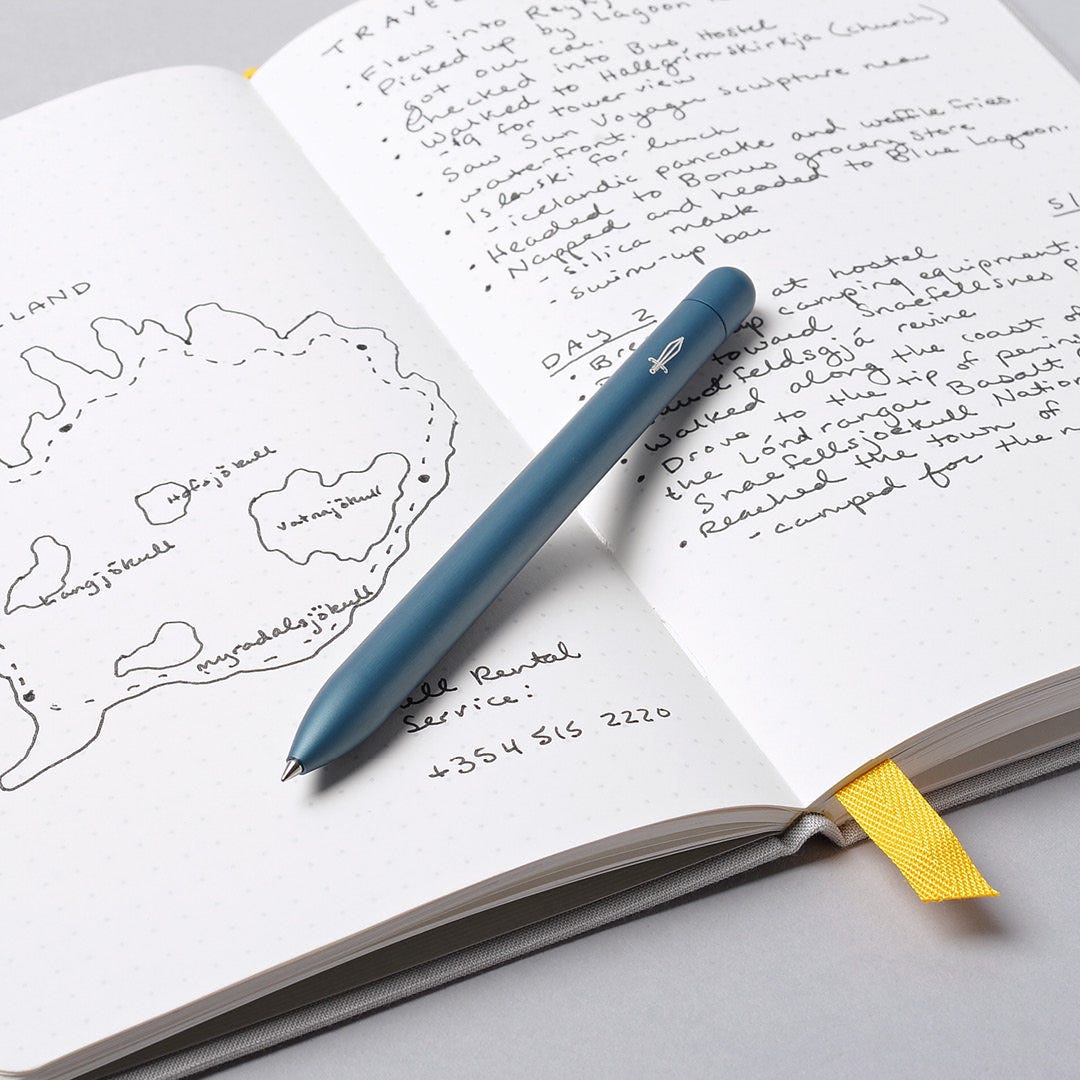 LAND
Hofsjökull
Vatnajökull
Langjökull
myradalsjökull
Rental
Service:
+354 515 2220
TRAVEL
Flew into Reyk
Picked up by Lagoon
got our car.
Checked into Bus Hostel
Walked to Hallgrimskirkja (church)
-$9 for tower view
Saw Sun Voyager sculpture near
waterfront.
Islenski for lunch
-icelandic pancake and waffle fries.
Headed to Bonus grocery store
Napped and headed to Blue Lagoon.
-silica mask
-swim-up bar
DAY 2
Bre at hostel
up camping equipment.
toward Snaefellsnes P
feldsgjá revine
Walked along the coast of
Drove to the tip of penins
the Lóndrangar Basalt
Snaefellsjoekull Nation
Reached the town of
-camped for the n